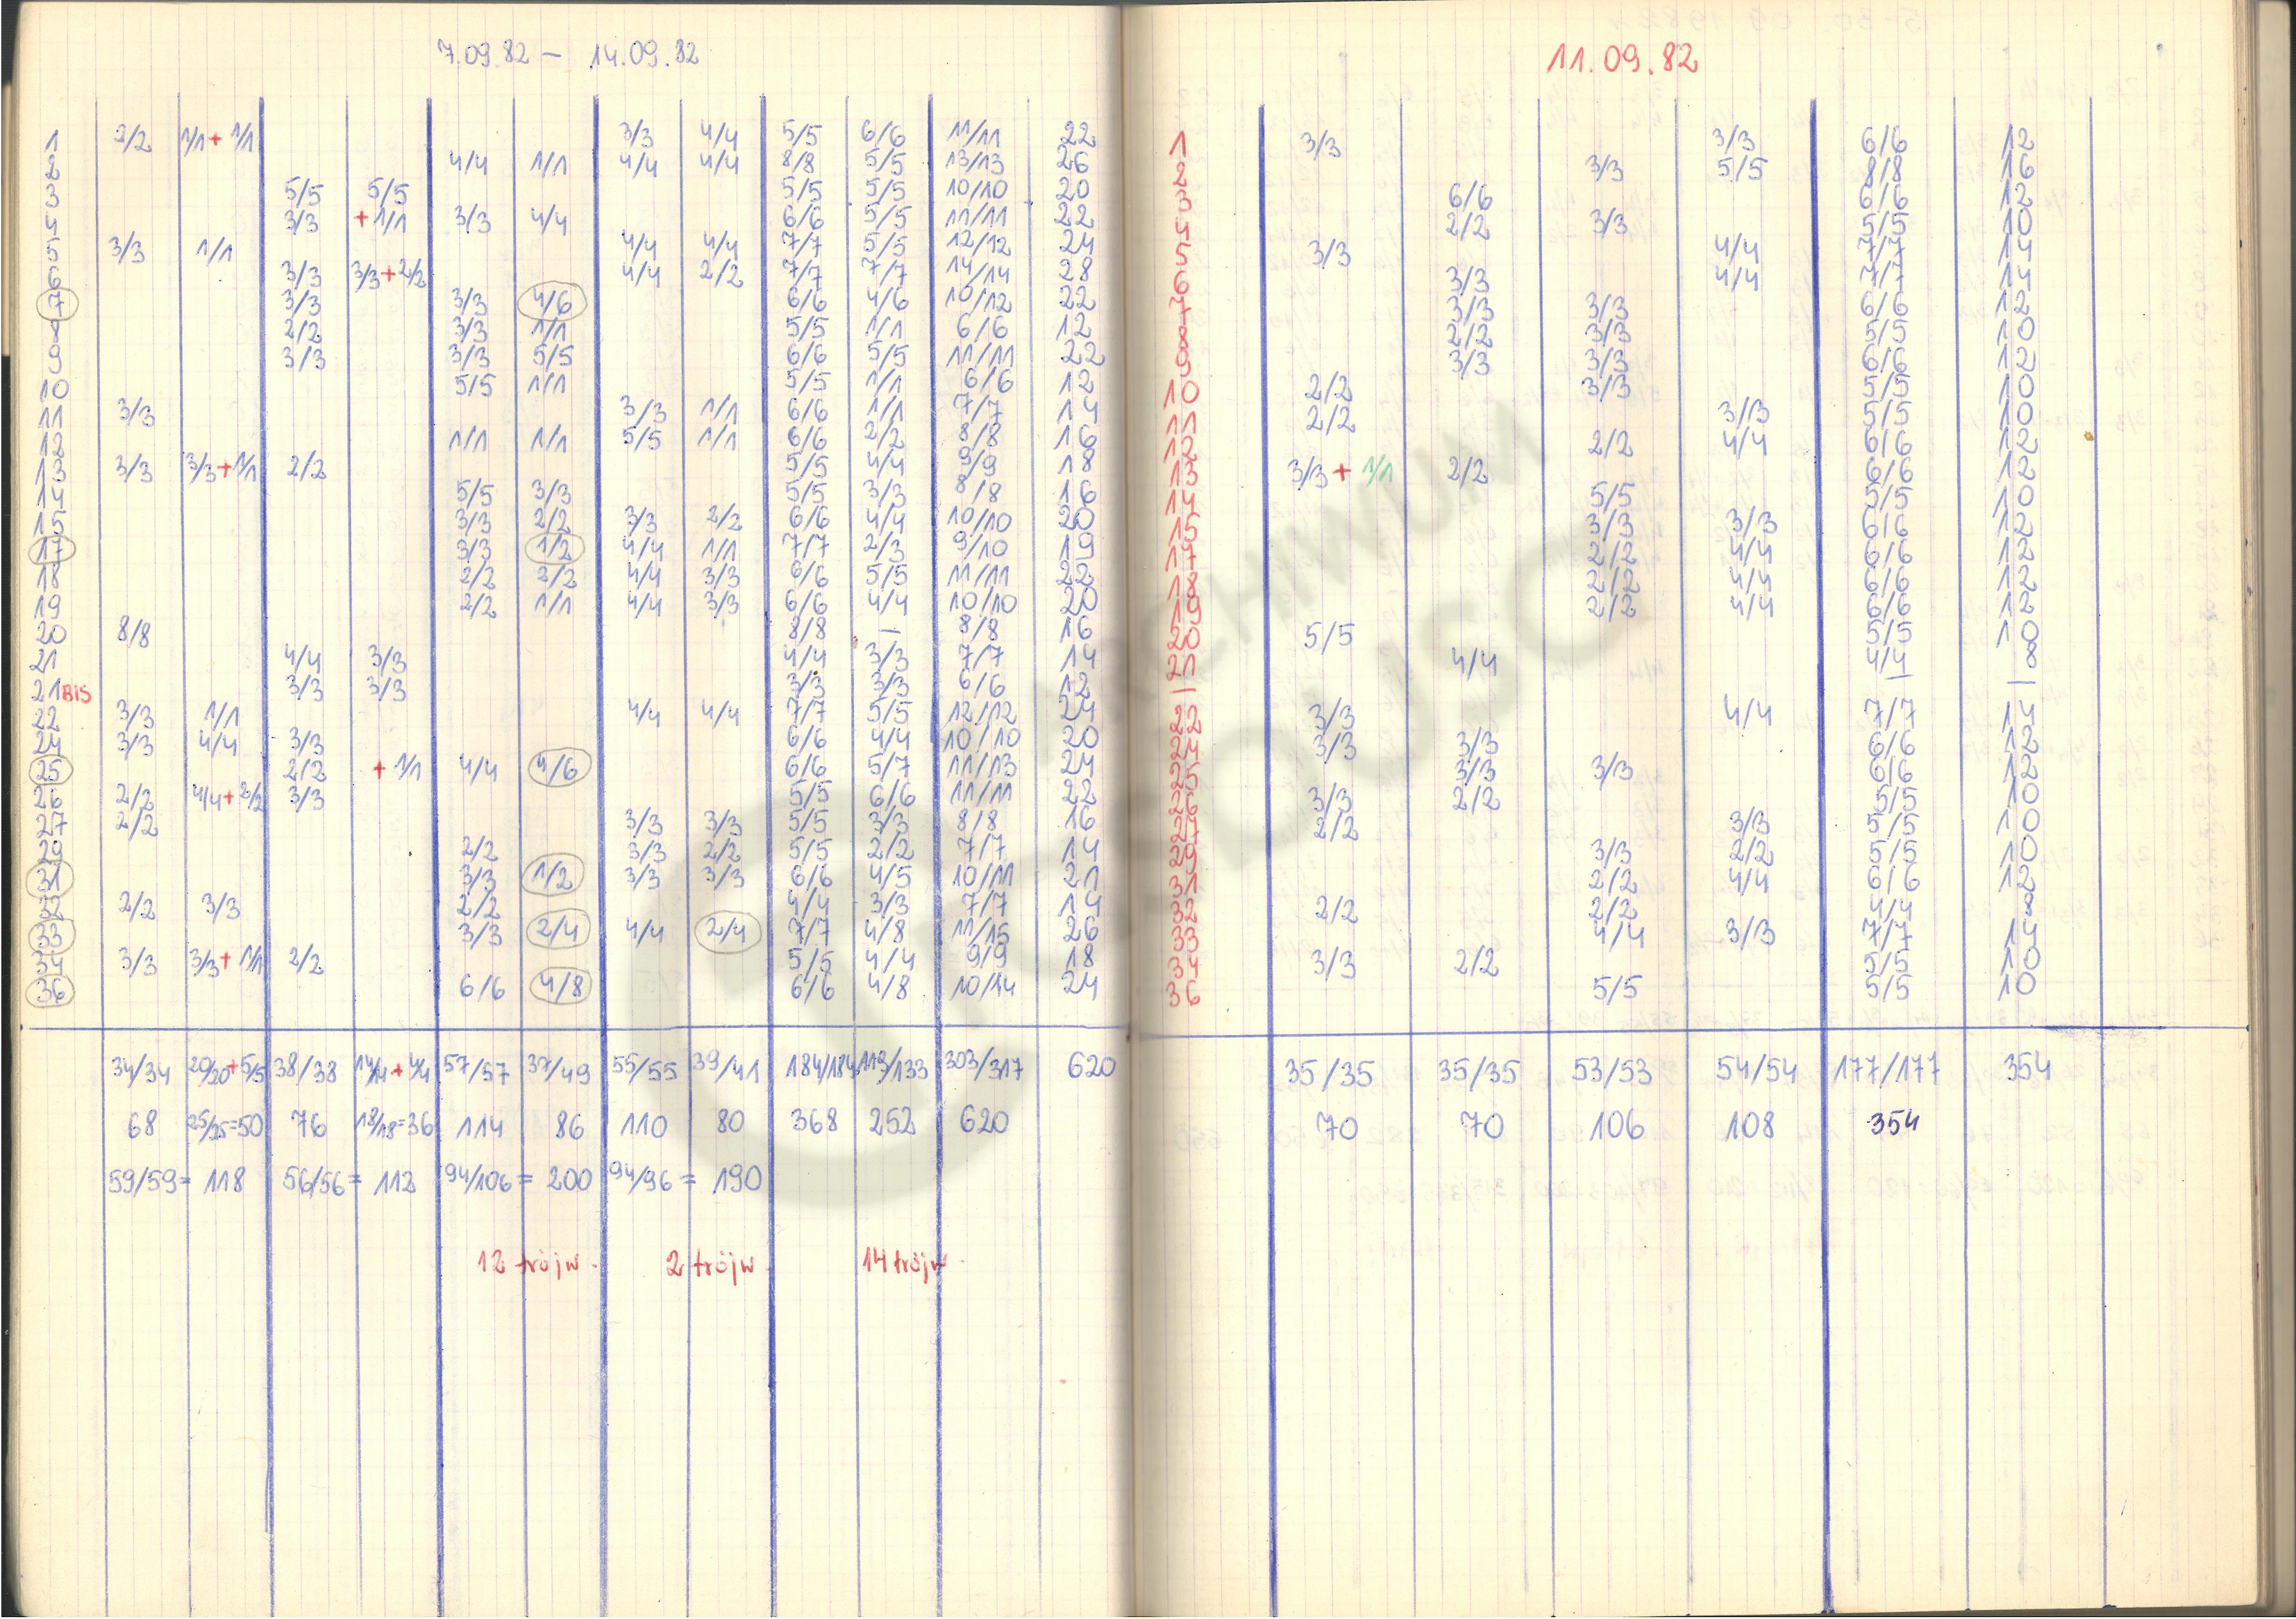 7.09.82 – 14.09.82
1 2/2 1/1+1/1 3/3 4/4 5/5 6/6 11/11 22
2 4/4 1/1 4/4 4/4 8/8 5/5 13/13 26
3 5/5 5/5 5/5 5/5 10/10 20
4 3/3 +1/1 3/3 4/4 6/6 5/5 11/11 22
5 3/3 1/1 4/4 4/4 7/7 5/5 12/12 24
6 3/3 3/3+2/2 4/4 2/2 7/7 7/7 14/14 28
7 3/3 3/3 4/6 6/6 4/6 10/12 22
8 2/2 3/3 1/1 5/5 1/1 6/6 12
9 3/3 3/3 5/5 6/6 5/5 11/11 22
10 5/5 1/1 5/5 1/1 6/6 12
11 3/3 3/3 1/1 6/6 1/1 7/7 14
12 1/1 1/1 5/5 1/1 6/6 2/2 8/8 16
13 3/3 3/3+1/1 2/2 5/5 4/4 9/9 18
14 5/5 3/3 5/5 3/3 8/8 16
15 3/3 2/2 3/3 2/2 6/6 4/4 10/10 20
17 3/3 1/2 4/4 1/1 7/7 2/3 9/10 19
18 2/2 2/2 4/4 3/3 6/6 5/5 11/11 22
19 2/2 1/1 4/4 3/3 6/6 4/4 10/10 20
20 8/8 8/8 – 8/8 16
21 4/4 3/3 4/4 3/3 7/7 14
21BIS 3/3 3/3 3/3 3/3 6/6 12
22 3/3 1/1 4/4 4/4 7/7 5/5 12/12 24
24 3/3 4/4 3/3 6/6 4/4 10/10 20
25 2/2 +1/1 4/4 4/6 6/6 5/7 11/13 24
26 2/2 4/4+2/2 3/3 5/5 6/6 11/11 22
27 2/2 3/3 3/3 5/5 3/3 8/8 16
29 2/2 3/3 2/2 5/5 2/2 7/7 14
31 3/3 1/2 3/3 3/3 6/6 4/5 10/11 21
32 2/2 3/3 2/2 4/4 3/3 7/7 14
33 3/3 2/4 4/4 2/4 7/7 4/8 11/15 26
34 3/3 3/3+1/1 2/2 5/5 4/4 9/9 18
36 6/6 4/8 6/6 4/8 10/14 24
34/34 20/20+5/5 38/38 14/14+4/4 57/57 37/49 55/55 39/41 184/184 119/133 303/317 620
68 25/25=50 76 18/18=36 114 86 110 80 368 252 620
59/59= 118 56/56= 112 94/106= 200 94/96= 190
12 trójw. 2 trójw. 14 trójw.
11.09.82
1 3/3 3/3 6/6 12
2 3/3 5/5 8/8 16
3 6/6 6/6 12
4 2/2 3/3 5/5 10
5 3/3 4/4 7/7 14
6 3/3 4/4 7/7 14
7 3/3 3/3 6/6 12
8 2/2 3/3 5/5 10
9 3/3 3/3 6/6 12
10 2/2 3/3 5/5 10
11 2/2 3/3 5/5 10
12 2/2 4/4 6/6 12
13 3/3+1/1 2/2 6/6 12
14 5/5 5/5 10
15 3/3 3/3 6/6 12
17 2/2 4/4 6/6 12
18 2/2 4/4 6/6 12
19 2/2 4/4 6/6 12
20 5/5 5/5 10
21 4/4 4/4 8
– – –
22 3/3 4/4 7/7 14
24 3/3 3/3 6/6 12
25 3/3 3/3 6/6 12
26 3/3 2/2 5/5 10
27 2/2 3/3 5/5 10
29 3/3 2/2 5/5 10
31 2/2 4/4 6/6 12
32 2/2 2/2 4/4 8
33 4/4 3/3 7/7 14
34 3/3 2/2 5/5 10
36 5/5 5/5 10
35/35 35/35 53/53 54/54 177/177 354
70 70 106 108 354